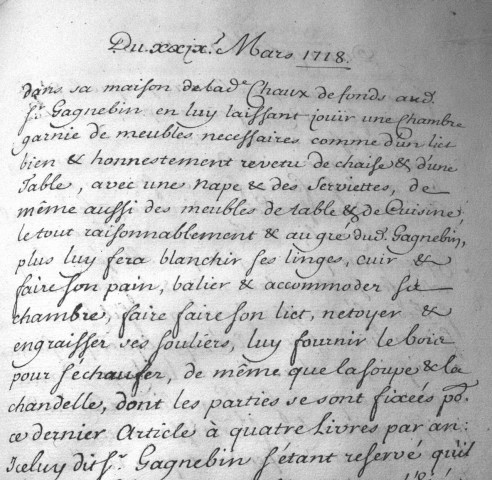 Du xxix.e Mars 1718.
dans sa maison de lad.e Chaux de fonds aud.
s.r Gagnebin en luy laissant jouir une Chambre
garnie de meubles necessaires comme d'un lict
bien & honnestement revetu de chaise & d'une
Table, avec une Nape & des Serviettes, de
même aussi des meubles de table & de Cuisine,
le tout raisonnablement & au gré dud. Gagnebin,
plus luy fera blanchir ses linges, cuir &
faire son pain, balier & accommoder sa
chambre, faire faire son lict, netoyer &
engraisser ses souliers, luy fournir le bois
pour s'échaufer, de même que la soupe & la
chandelle, dont les parties se sont fixées po.
ce dernier Article à quatre Livres par an:
Iceluy dit S.r Gagnebin s'étant reservé qu'il